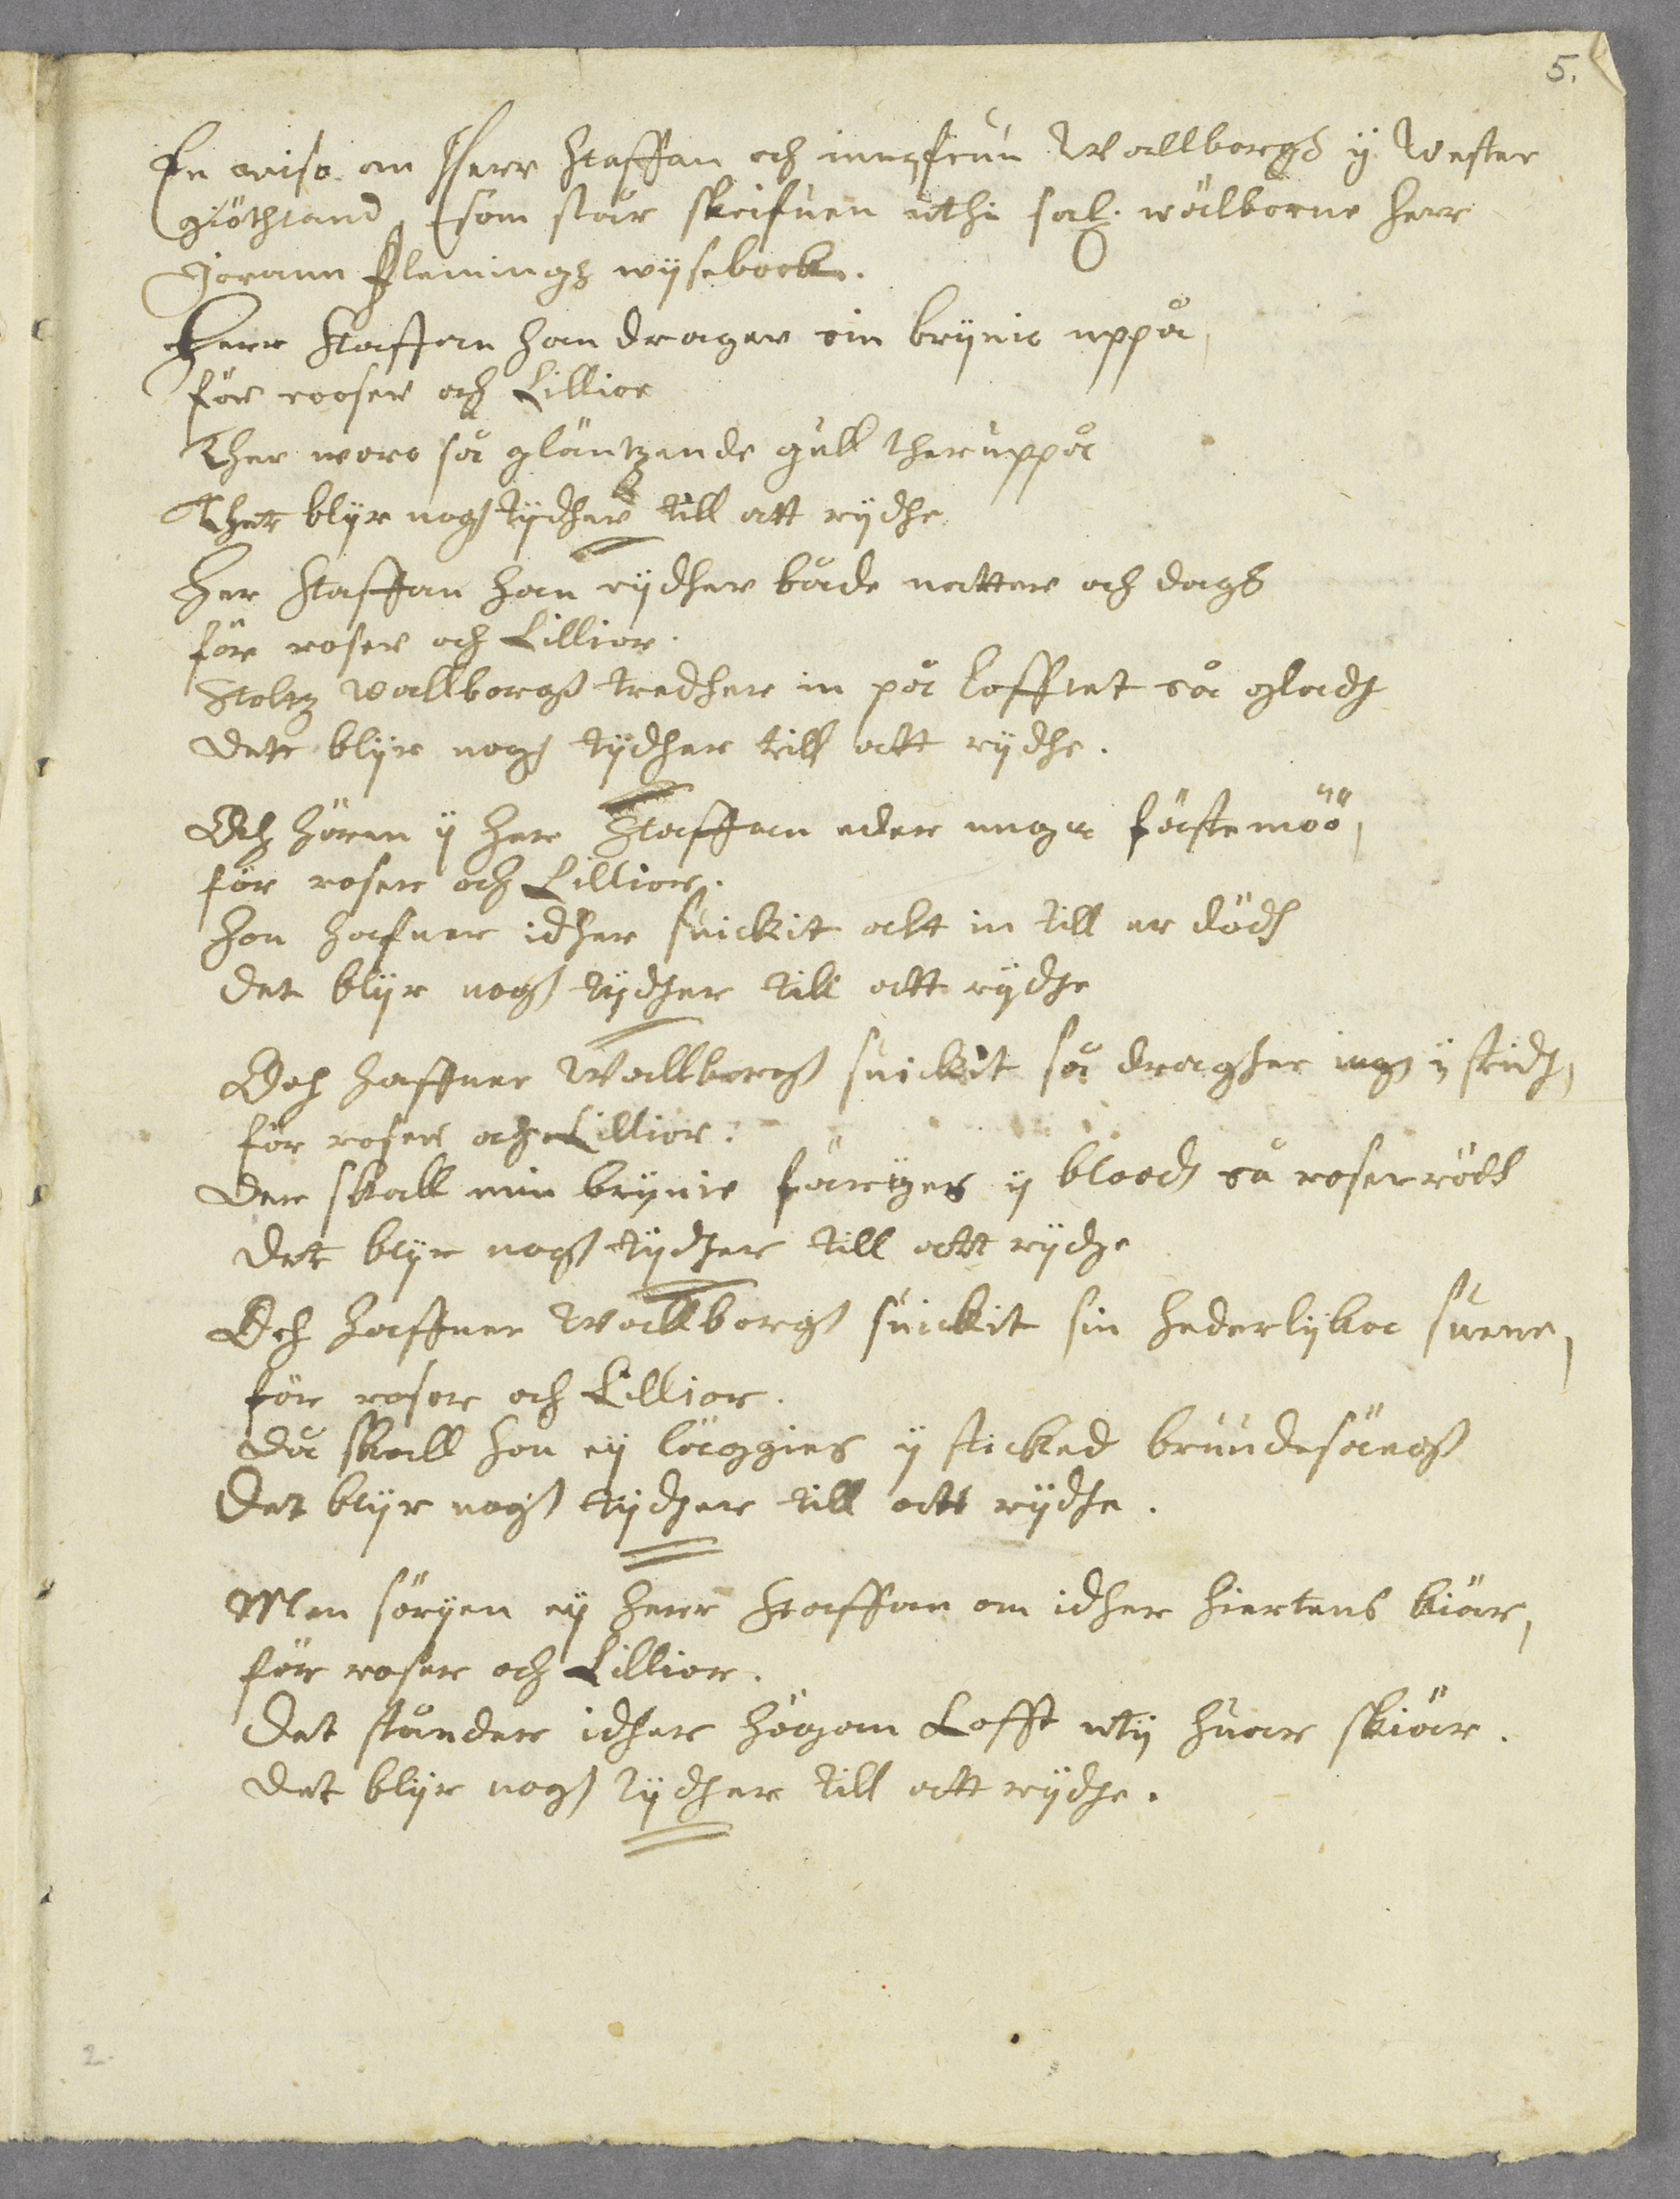 5.
En wisa om Herr Staffan och iungfruu Wallborgh ÿ Wester
giöthland, som står skrifuen uthi sal. wälborne herr
Jorann Flemings wijsebook.
Herr Staffan han drager sin brÿnia uppå,
för rooser och Lillior
Ther woro så gläntzende gull theruppå
Thet blÿr nogh tÿdher till att rÿdhe
Her Staffan han rÿdher både natter och dagh
för roser och Lillior.
Stoltz wallborgh tredher in på lofftet så gladh
dett blÿr nogh tÿdher till att rÿdhe.
Och hören ÿ her Staffan eder unga fästemöö,
för roser och Lillior.
hon hafuer idher suickit alt in till er dödh
det blÿr nogh tÿdher till att rÿdhe
Och haffuer Wallborgh suickit så dragher iag ÿ stridh,
för roser och Lillior.
der skall min brÿnie färges ÿ bloodh så roserödh
det blÿr nogh tÿdher till att rÿdhe
Och haffuer Wallborgh suickit sin hederlÿka
för roser och Lillior.
då skall hon eÿ läggies ÿ sticked bruudesängh
Det blÿr nogh tÿdher till att rÿdhe.
Men sörÿen eÿ herr Staffan om idher hiertens kiär,
för roser och Lillior.
Det stånder idher högom Lofft utÿ huar skiär.
det blÿr nogh tÿdher till att rÿdhe.
2.